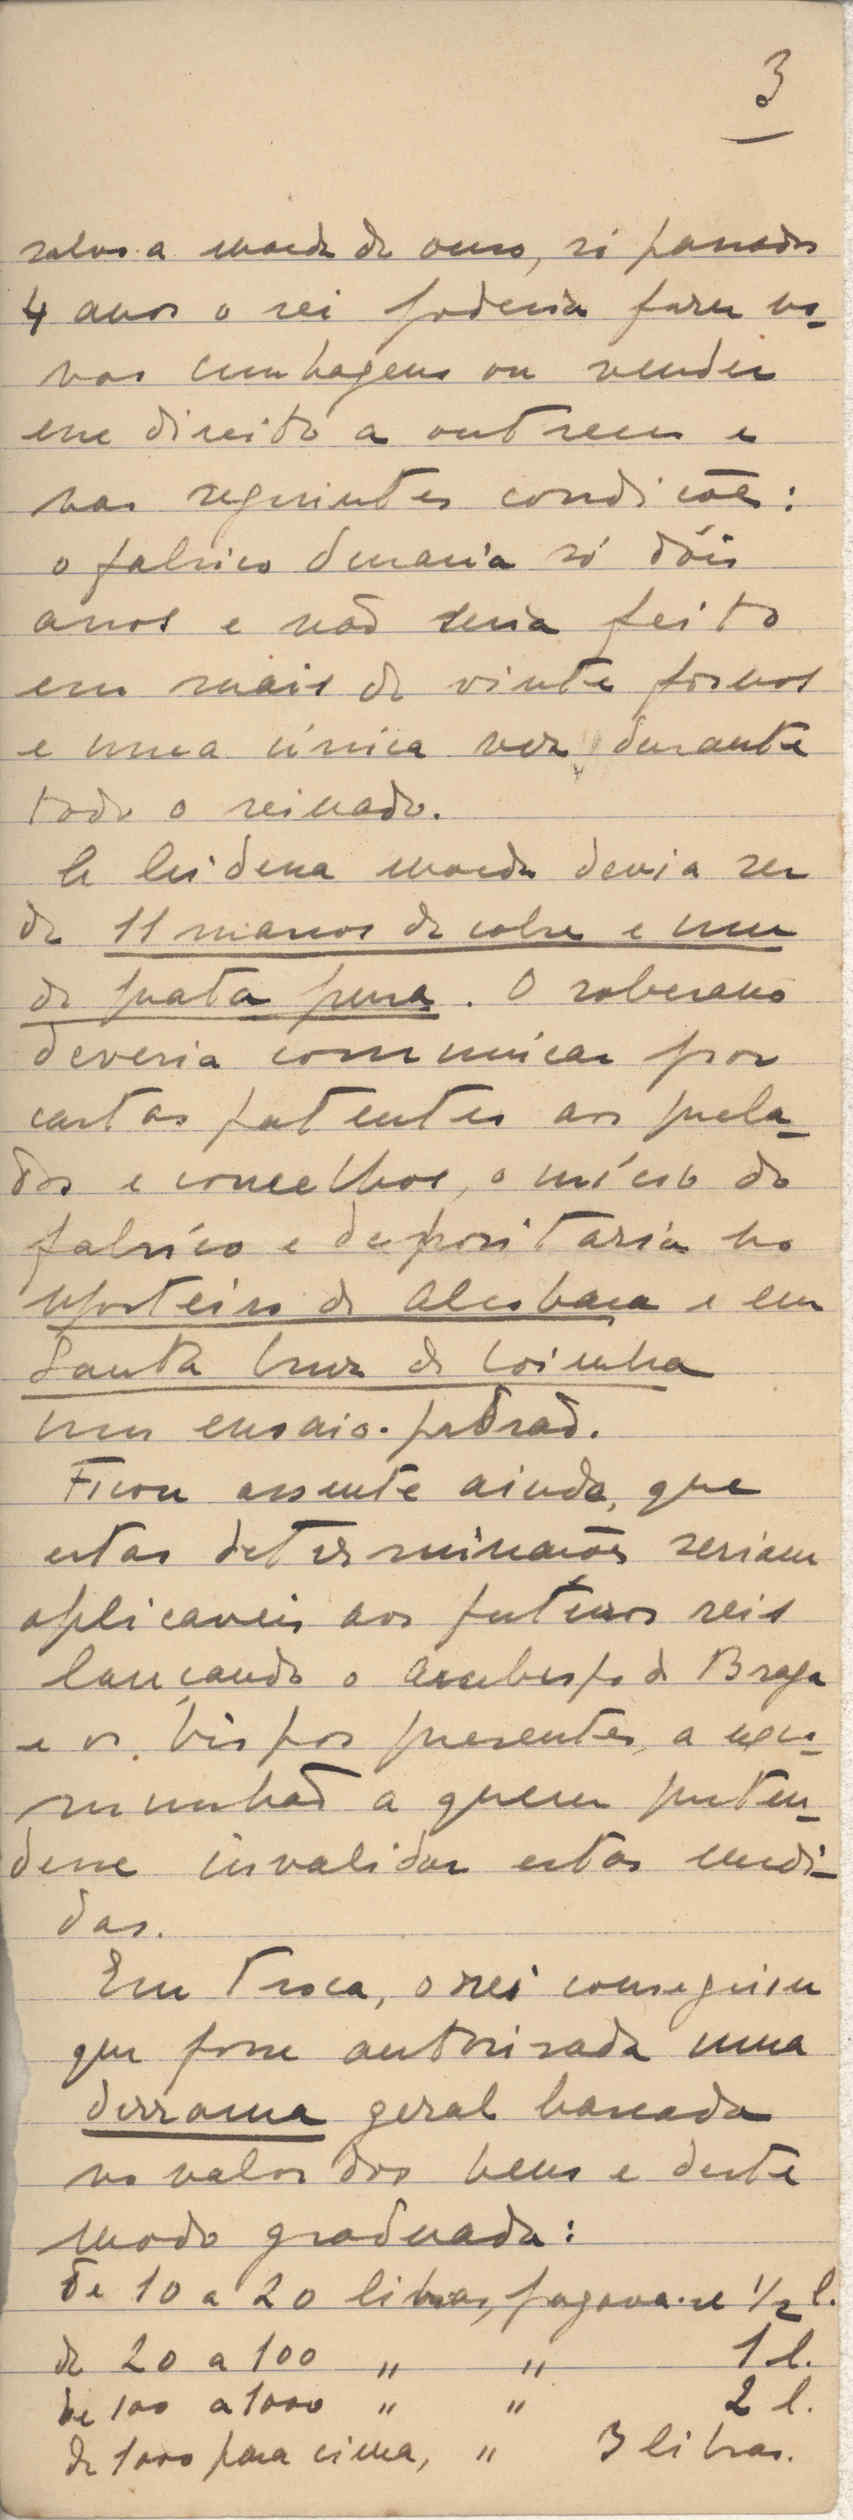 3
salvo a moeda de ouro, só passados
4 anos o rei poderia fazer no-
vas cunhagens ou vender
esse direito a outrem e
nas seguintes condicões:
o fabrico duraria só dóis
anos e não seria feito
em mais de vinte fornos
e uma única vez durante
todo o reinado.
A lei dessa moeda devia ser
de 11 marcos de cobre e um
de prata pura. O soberano
deveria communicar por
cartas patentes aos prela-
dos e concelhos, o início do
fabrico e depositaria no
Mosteiro de Alcobaça e em
Santa Cruz de Coimbra
um ensaio-padrão.
Ficou assente ainda, que
estas determinações seriam
aplicaveis aos futuros reis
lançando o Arcebispo de Braga
e os bispos presentes, a exco-
munhão a quem preten-
desse invalidar estas medi-
das.
Em troca, o rei conseguiu
que fosse autorisada uma
derrama geral baseada
no valor dos bens e deste
modo graduada:
De 10 a 20 libras, pagava-se 1/2 l.
de 20 a 100 " " 1 l.
De 100 a 1000 " " 2 l.
de 1000 para cima, " 3 libras.